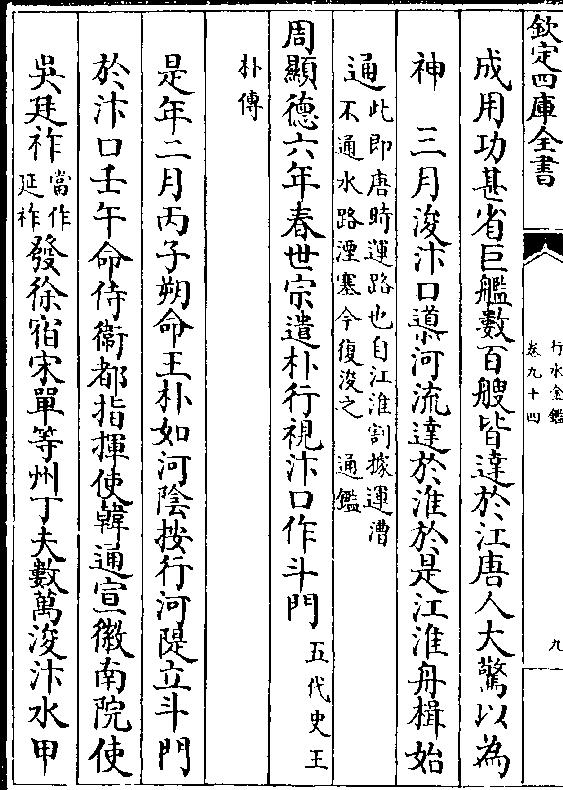 欽定四庫全書
行水金鑑
卷九十四
九
成用功甚省巨艦數百艘皆達於江唐人大驚以為
神　三月浚汴口導河流達於淮於是江淮舟楫始
通此即唐時運路也自江淮割據運漕
不通水路湮塞今復浚之　通鑑
周顯德六年春世宗遣朴行視汴口作斗門五代史王
朴傳
是年二月丙子朔命王朴如河陰按行河隄立斗門
於汴口壬午命侍衛都指揮使韓通宣徽南院使
吳廷祚當作
延祚發徐宿宋單等州丁夫數萬浚汴水甲